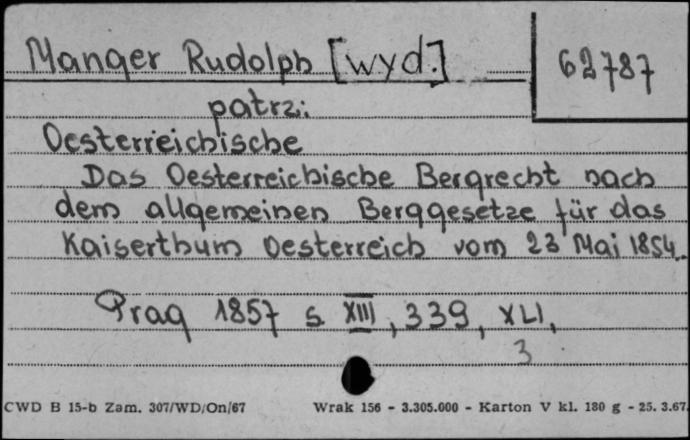 Manger Rudolph [wyd.]
62787
patrz:
Oesterreichische
Das Oesterreichische Bergrecht nach
dem allgemeinen Berggesetze für das
Kaiserthum Oesterreich vom 23 Mai 1854.
Prag 1857 s XIII, 339, XLI,
3
CWD B 15-b Zam. 307/WD/On/67 Wrak 156 - 3.305.000 - Karton V kl. 180 g - 25. 3.67.